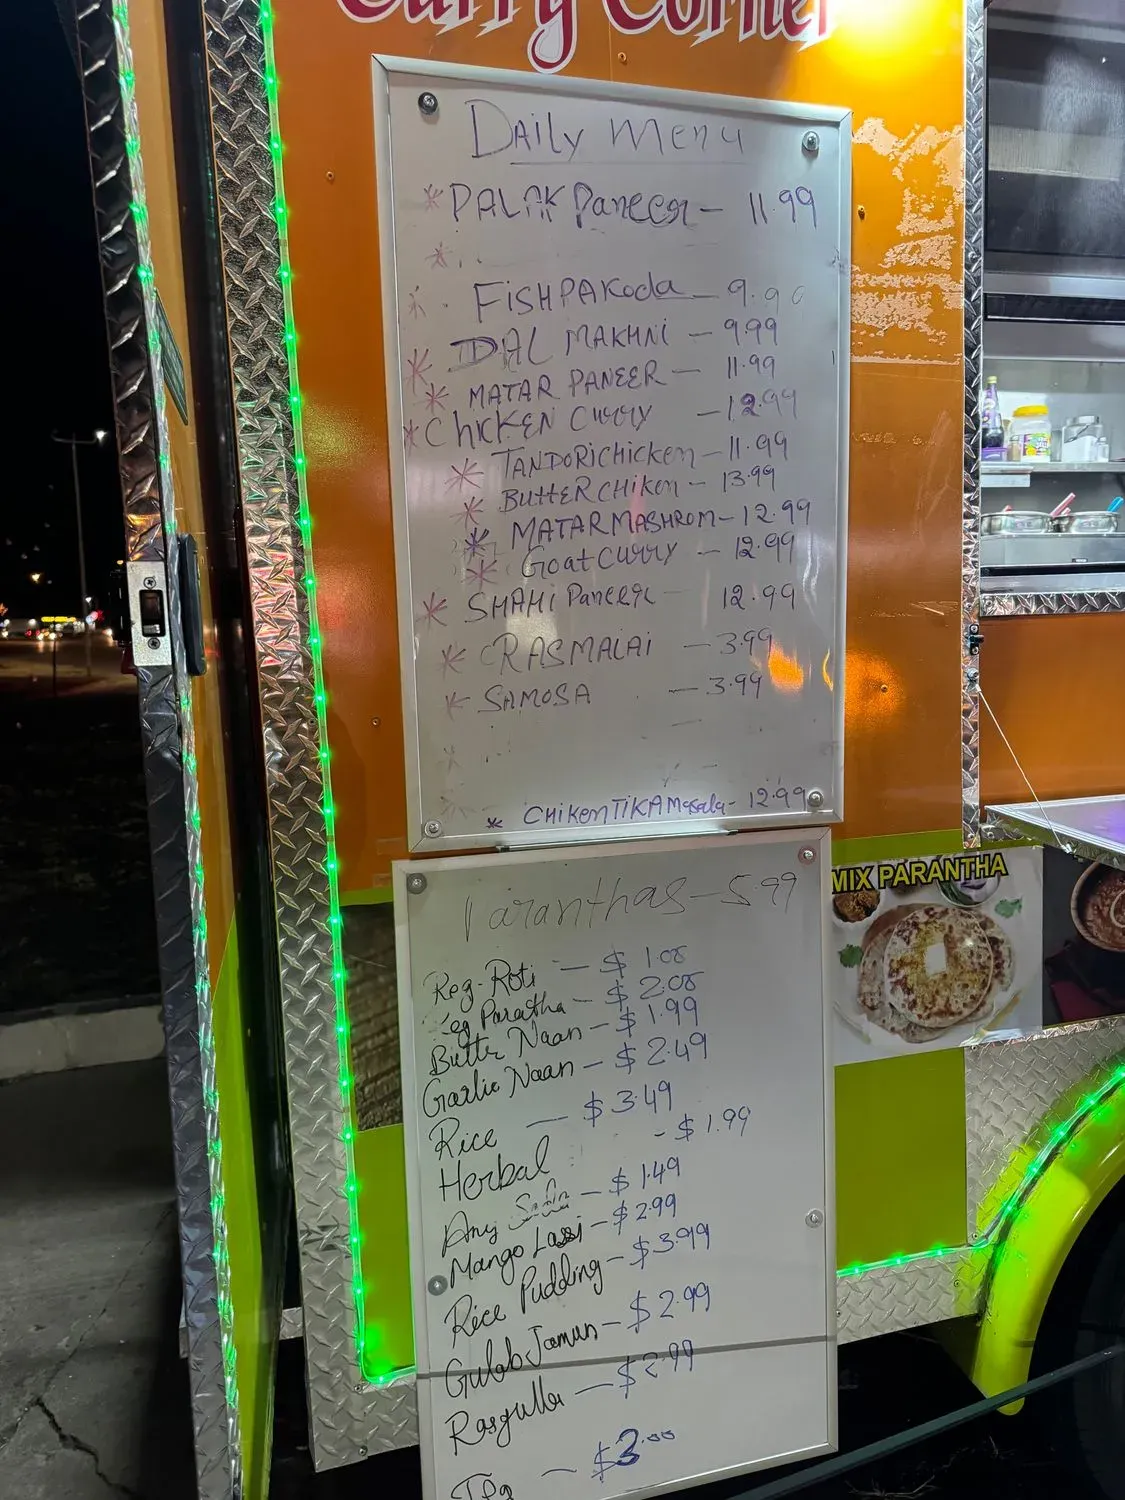 Curry Corner
Daily Menu
* PALAK Paneer - 11.99
FiSH PAKoda - 9.99
* DAL MAKHNI - 9.99
* MATAR PANEER - 11.99
* ChicKEN Curry - 12.99
* TANDORI CHicken - 11.99
* BUttER CHiken - 13.99
* MATAR MASHROM - 12.99
* Goat Curry - 12.99
* SHAHi Paneer - 12.99
* RASMALAI - 3.99
* SAMOSA - 3.99
* CHiKenTiKA Masala - 12.99
MIX PARANTHA
Paranthas - 5.99
Reg. Roti - $ 1.08
Reg Parattha - $ 2.08
Butter Naan - $ 1.99
Garlic Naan - $ 2.49
Rice - $ 3.49
Herbal - $ 1.99
Any Soda - $ 1.49
Mango Lassi - $ 2.99
Rice Pudding - $ 3.99
Gulab Jamun - $ 2.99
Rasgulla - $ 2.99
- $ 3.00